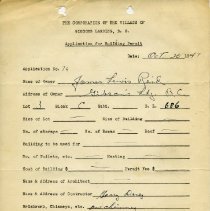 THE CORPORATION OF THE VILLAGE OF
GIBSONS LANDING, B. C.
Application for Building Permit
Date Oct. 20 1947
Application No. 74
Name of Owner James Lewis Reid
Address of Owner Gibson's Ldg. B.C.
Lot 1 Block C D. L. 686
Size of Lot Size of Building
No. of storeys No. of Rooms
Building to be used for
No. of Buildings, etc. Heating
Cost of Building $ Permit Fee $
Name & Address of Architect
Name & Address of Contractor Harry
Brickwork, Chimneys, etc. one chimney